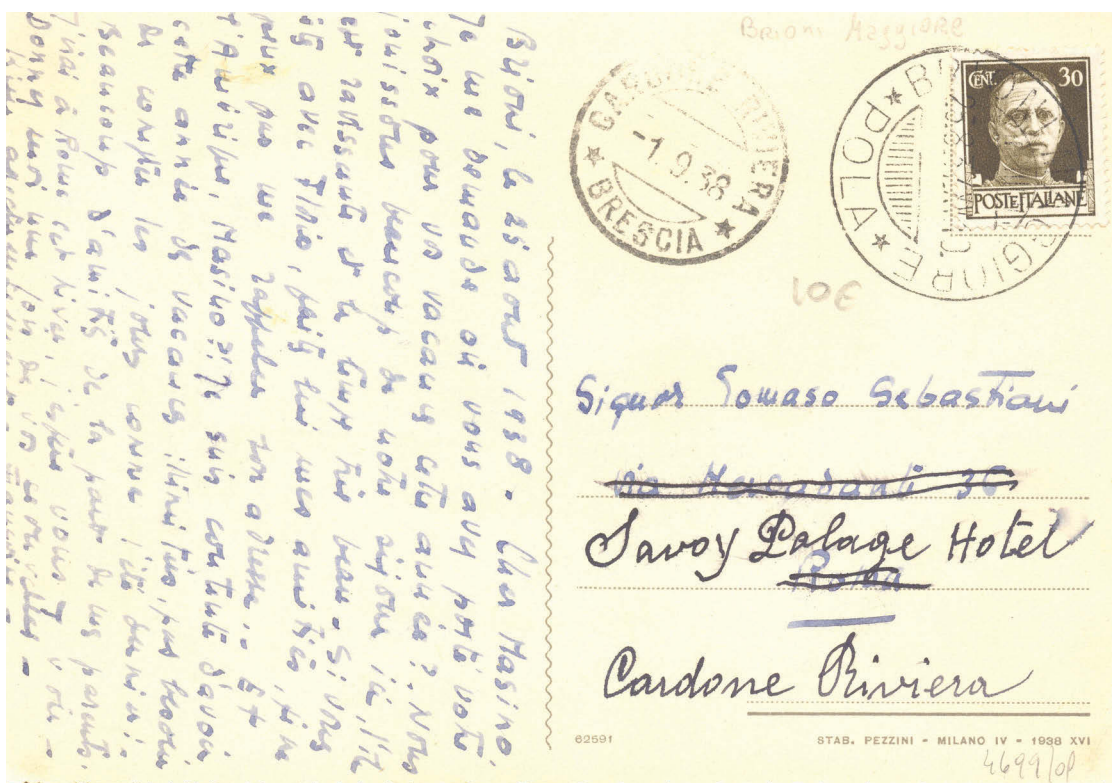 Brioni Maggiore
Brioni, le 25 août 1938. Cher Masino,
Je me demande où vous avez porté votre
choix pour vos vacances cette année? Nous
jouissons beaucoup de notre séjour ici, l'île
est ravissante et le temps très beau. Si vous
avec Titio, faites lui mes amitiés, je ne
peux pas me rappeler son adresse... Et
l'Amérique, Masino?! Je suis contente d'avoir
cette année de vacances illimitées, pas besoin
de compter les jours comme l'été dernier!
Beaucoup d'amitiés de la part de mes parents.
J'irai à Rome cet hiver, j'espère vous y voir -
Donnez moi une fois de vos nouvelles -
GARDONE RIVIERA
-1.9.38
★ BRESCIA ★
CENT. 30
POSTE ITALIANE
GIORE ★ POLA ★ BR
10€
Signor Tomaso Sebastiani
via Mercadanti 36
Savoy Palage Hotel
Roma
Cardone Riviera
62591
STAB. PEZZINI - MILANO IV - 1938 XVI
4699/OP